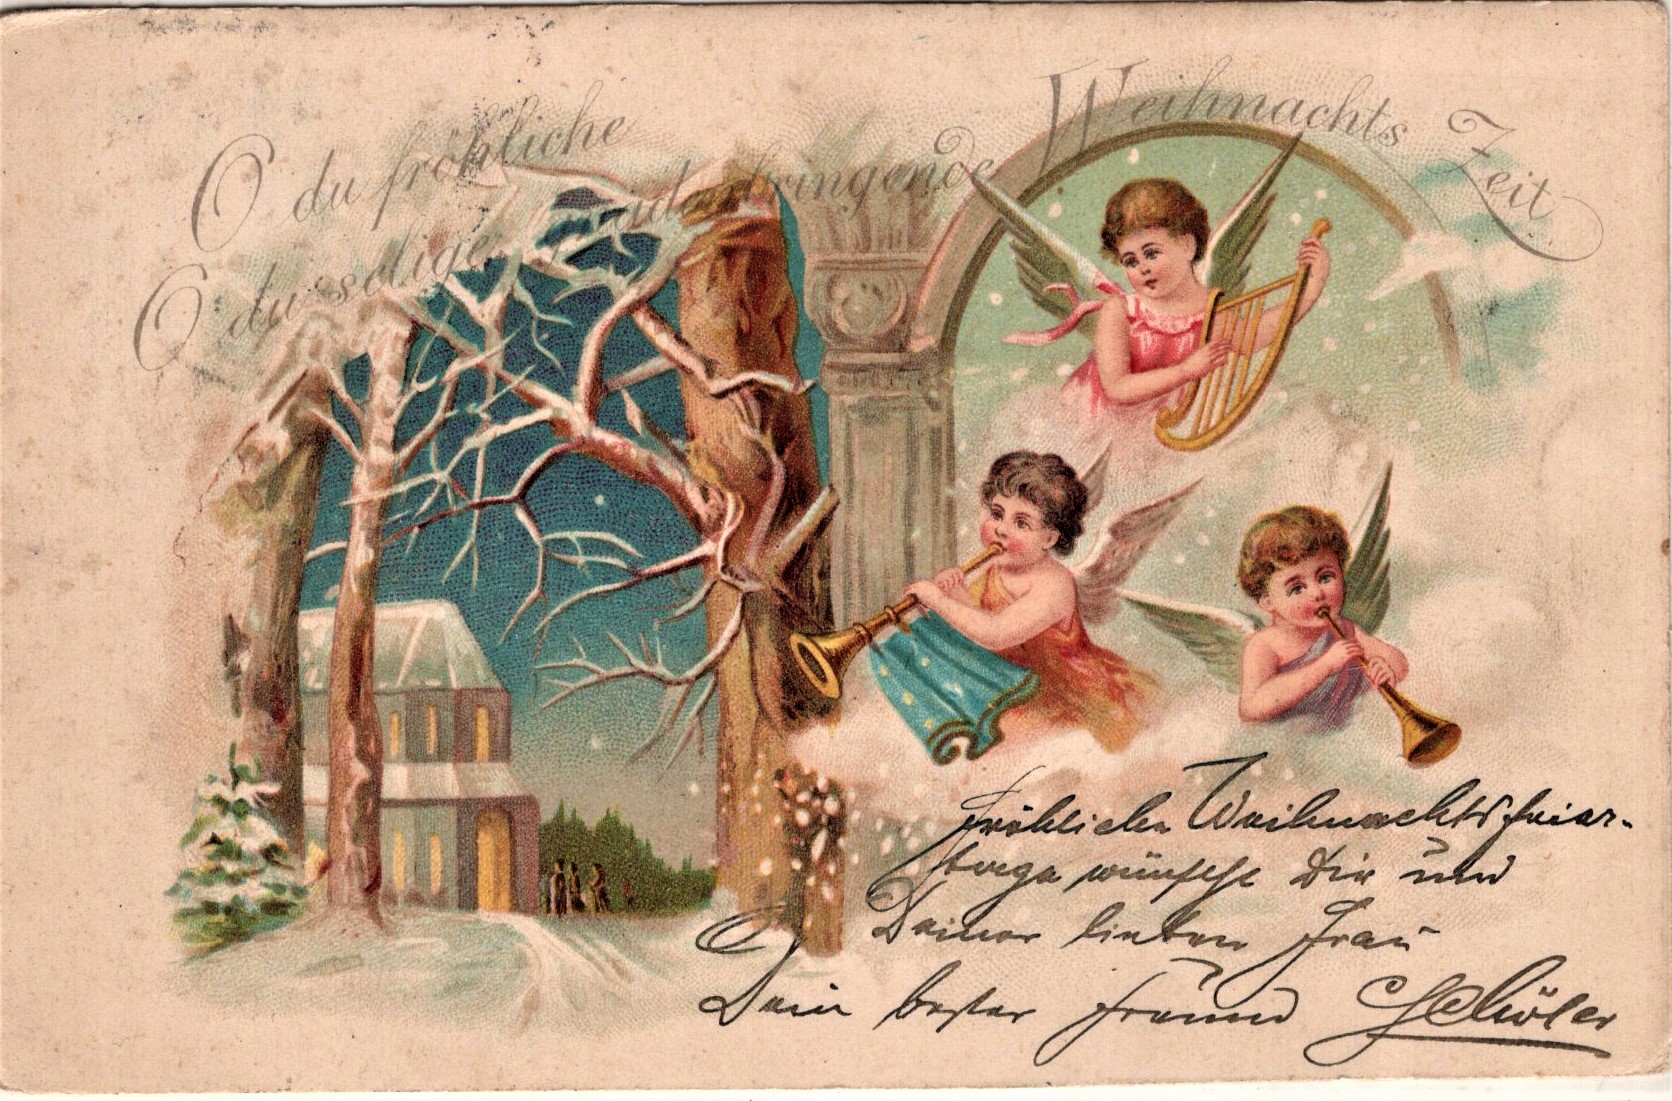 O du fröhliche
O du selige gnadenbringende Weihnachts Zeit
Fröhliche Weihnachtsfeier-
tage wünscht Dir und
Deiner lieben Frau
Dein bester Freund